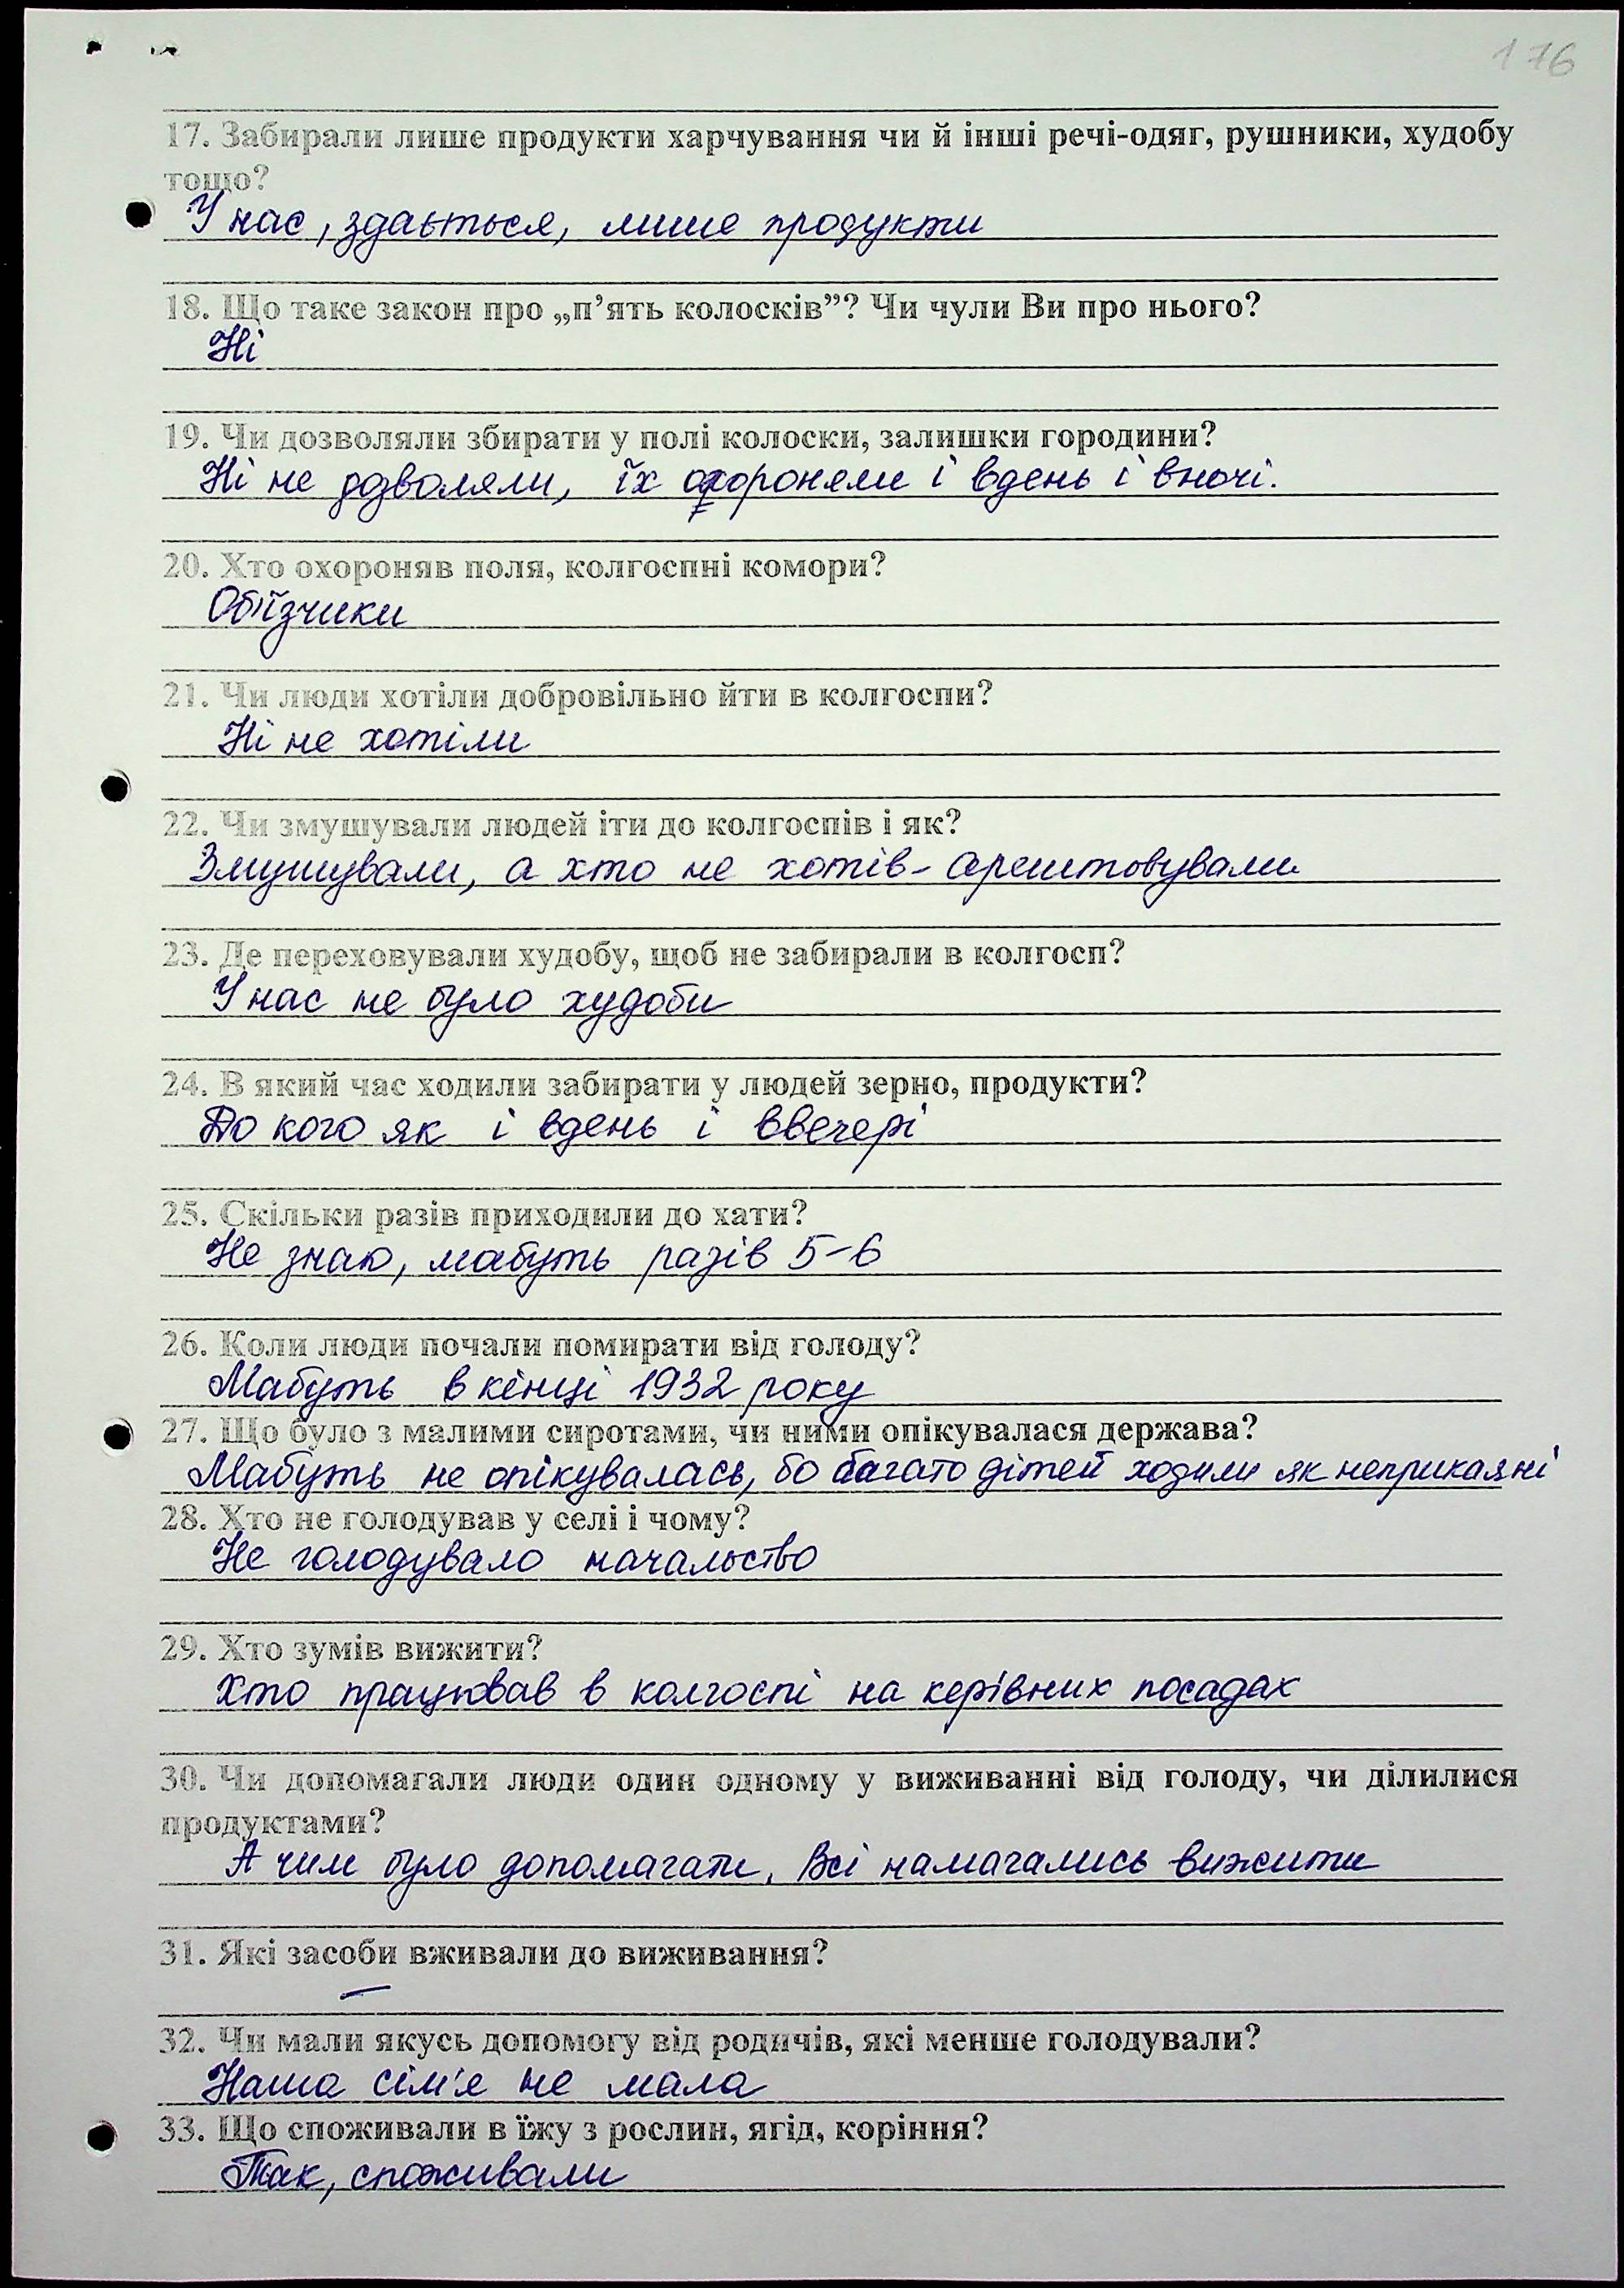 176
17. Забирали лише продукти харчування чи й інші речі-одяг, рушники, худобу
тощо?
У нас, здається, лише продукти
18. Що таке закон про „п’ять колосків”? Чи чули Ви про нього?
Ні
19. Чи дозволяли збирати у полі колоски, залишки городини?
Ні не дозволяли, їх охороняли і вдень і вночі.
20. Хто охороняв поля, колгоспні комори?
Об'їзчики
21. Чи люди хотіли добровільно йти в колгоспи?
Ні не хотіли
22. Чи змушували людей іти до колгоспів і як?
Змушували, а хто не хотів - арештовували
23. Де переховували худобу, щоб не забирали в колгосп?
У нас не було худоби
24. В який час ходили забирати у людей зерно, продукти?
До кого як і вдень і ввечері
25. Скільки разів приходили до хати?
Не знаю, мабуть разів 5-6
26. Коли люди почали помирати від голоду?
Мабуть в кінці 1932 року
27. Що було з малими сиротами, чи ними опікувалася держава?
Мабуть не опікувалась, бо багато дітей ходили як неприкаяні
28. Хто не голодував у селі і чому?
Не голодувало начальство
29. Хто зумів вижити?
Хто працював в колгоспі на керівних посадах
30. Чи допомагали люди один одному у виживанні від голоду, чи ділилися
продуктами?
А чим було допомагати. Всі намагались вижити
31. Які засоби вживали до виживання?
—
32. Чи мали якусь допомогу від родичів, які менше голодували?
Наша сім'я не мала
33. Що споживали в їжу з рослин, ягід, коріння?
Так, споживали